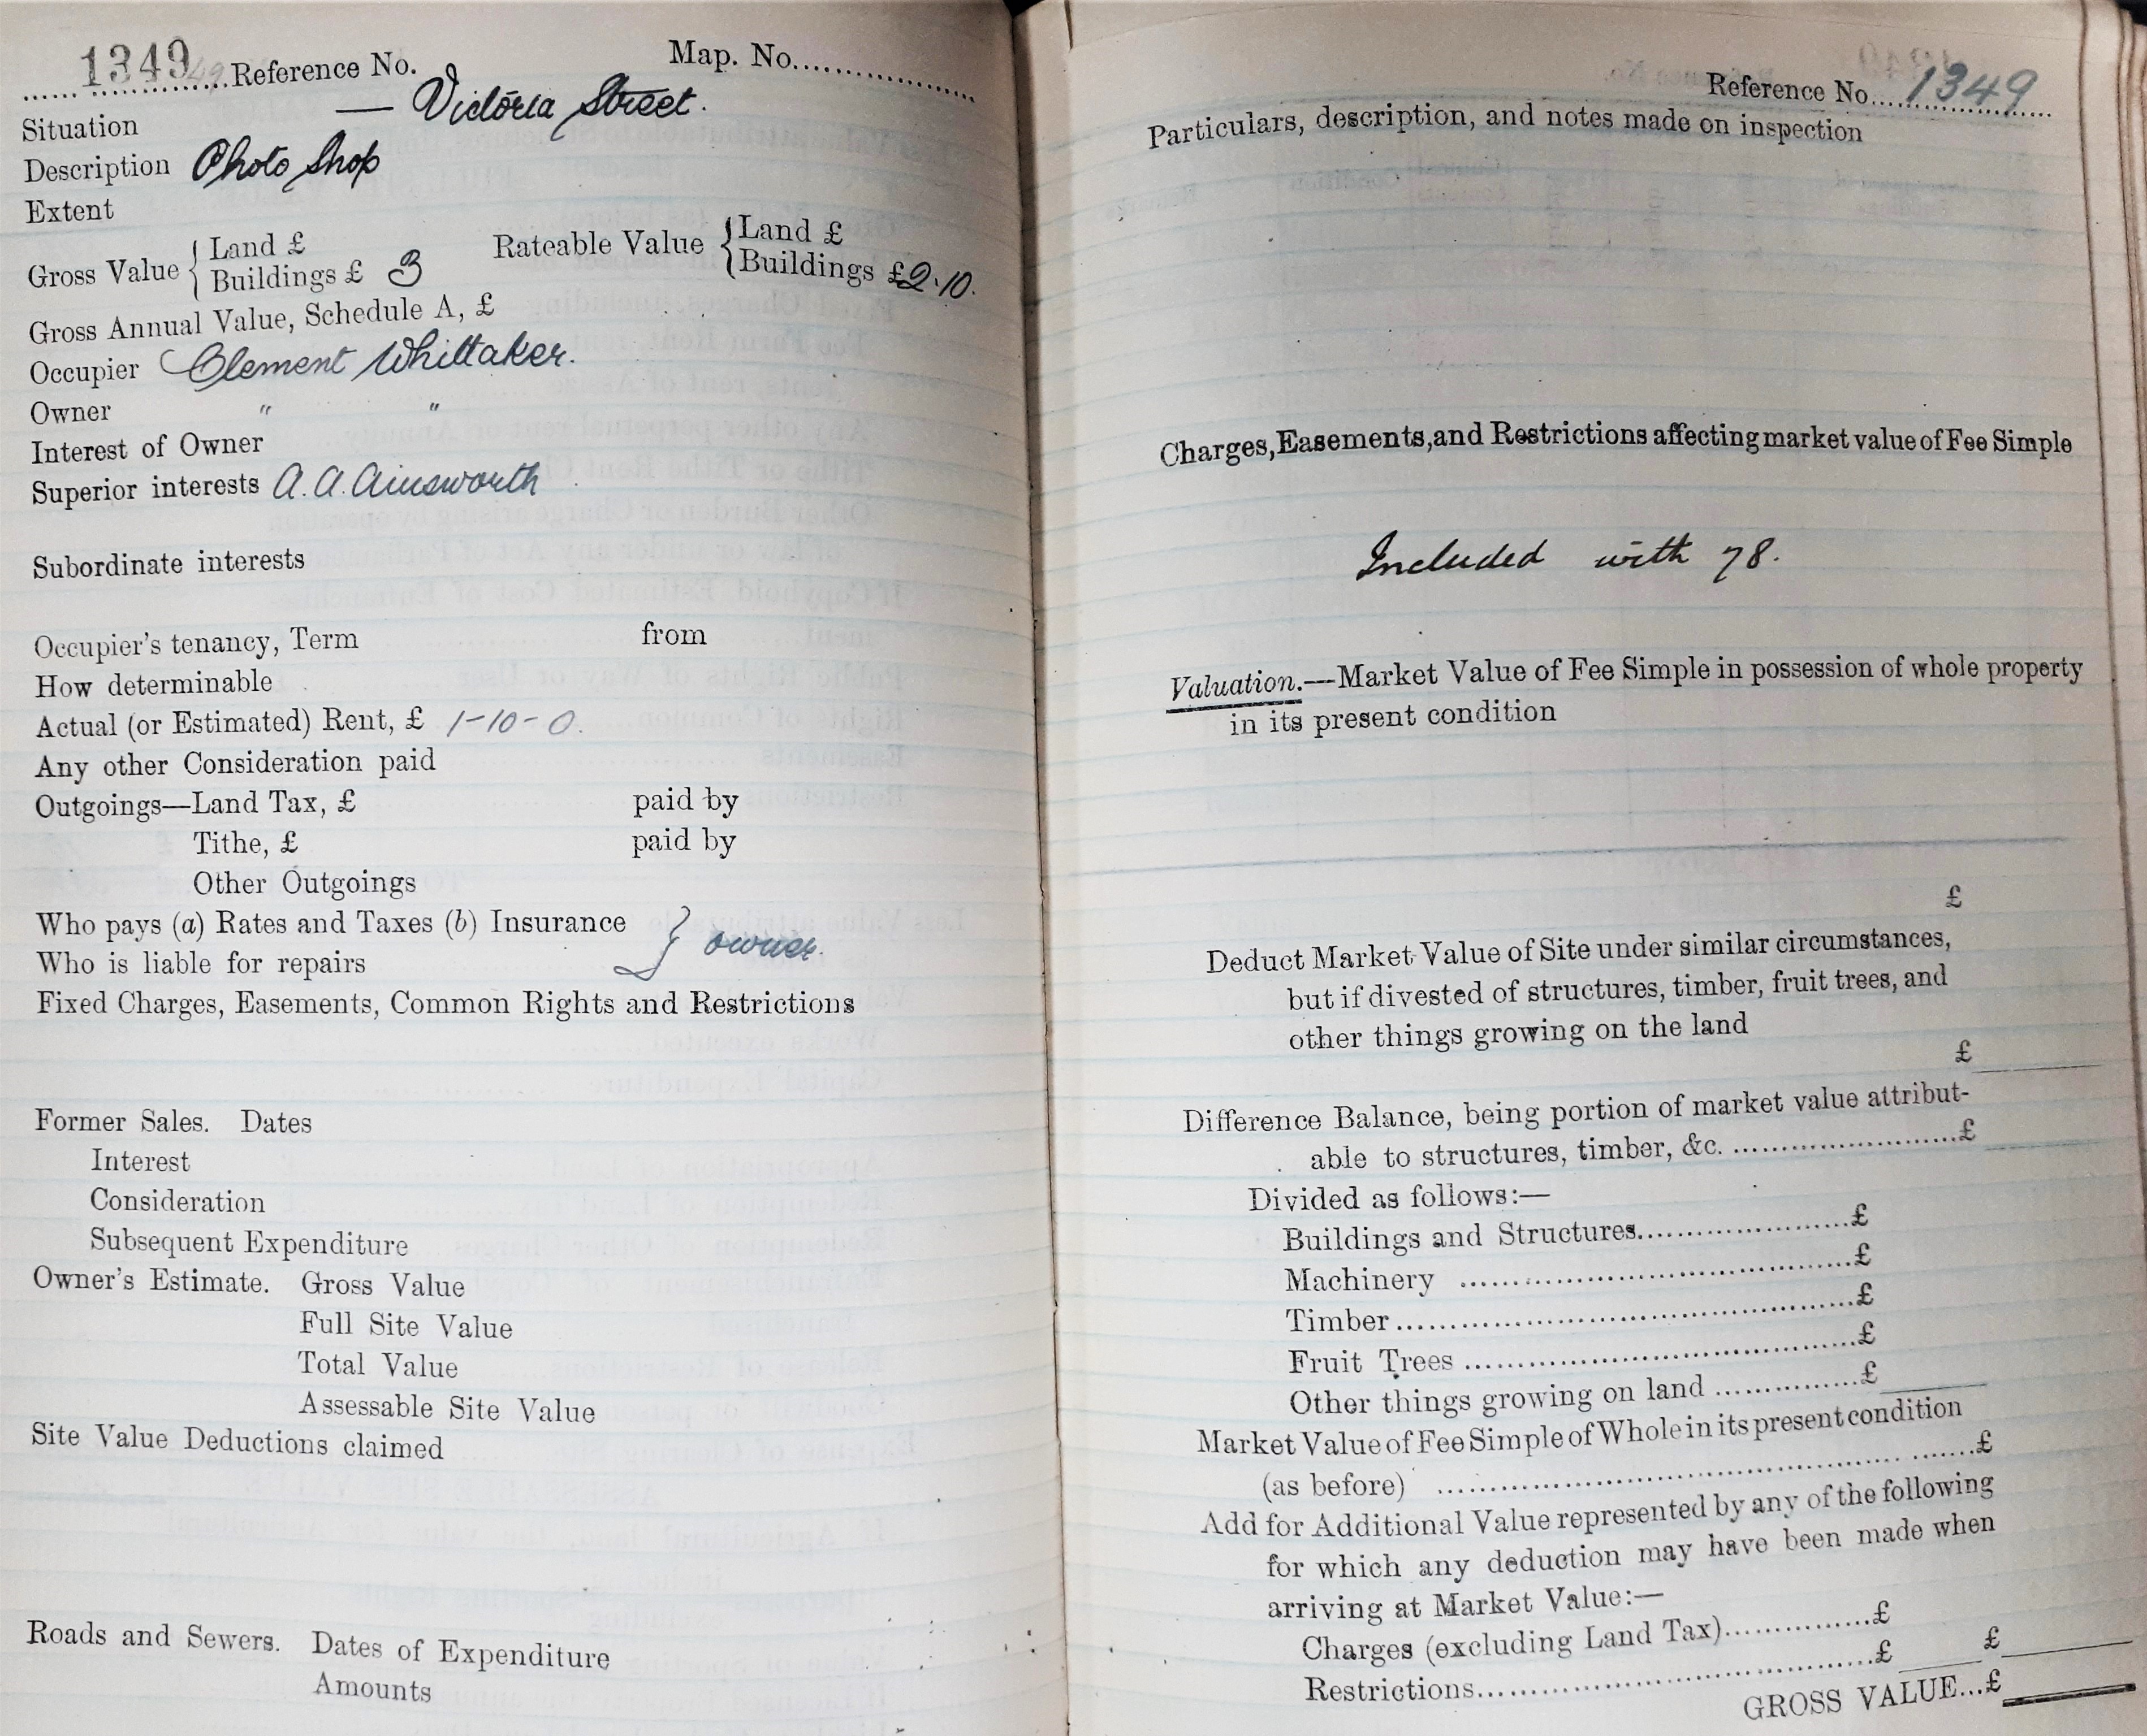 1349 Reference No. Map. No.
Situation — Victoria Street.
Description Photo Shop
Extent
Gross Value { Land £ Rateable Value { Land £
Buildings £ 3 Buildings £2.10.
Gross Annual Value, Schedule A, £
Occupier Clement Whittaker.
Owner " "
Interest of Owner
Superior interests A. A. Ainsworth
Subordinate interests
Occupier's tenancy, Term from
How determinable
Actual (or Estimated) Rent, £ 1-10-0.
Any other Consideration paid
Outgoings—Land Tax, £ paid by
Tithe, £ paid by
Other Outgoings
Who pays (a) Rates and Taxes (b) Insurance } owner.
Who is liable for repairs
Fixed Charges, Easements, Common Rights and Restrictions
Former Sales. Dates
Interest
Consideration
Subsequent Expenditure
Owner's Estimate. Gross Value
Full Site Value
Total Value
Assessable Site Value
Site Value Deductions claimed
Roads and Sewers. Dates of Expenditure
Amounts
Reference No. 1349
Particulars, description, and notes made on inspection
Charges, Easements, and Restrictions affecting market value of Fee Simple
Included with 78.
Valuation.—Market Value of Fee Simple in possession of whole property
in its present condition
£
Deduct Market Value of Site under similar circumstances,
but if divested of structures, timber, fruit trees, and
other things growing on the land
£
Difference Balance, being portion of market value attribut-
able to structures, timber, &c. ........................£
Divided as follows:—
Buildings and Structures.....................£
Machinery .......................................£
Timber.............................................£
Fruit Trees ......................................£
Other things growing on land ...............£
Market Value of Fee Simple of Whole in its present condition
(as before) ..................................................£
Add for Additional Value represented by any of the following
for which any deduction may have been made when
arriving at Market Value:—
Charges (excluding Land Tax)...............£
Restrictions.......................................£ £
GROSS VALUE...£